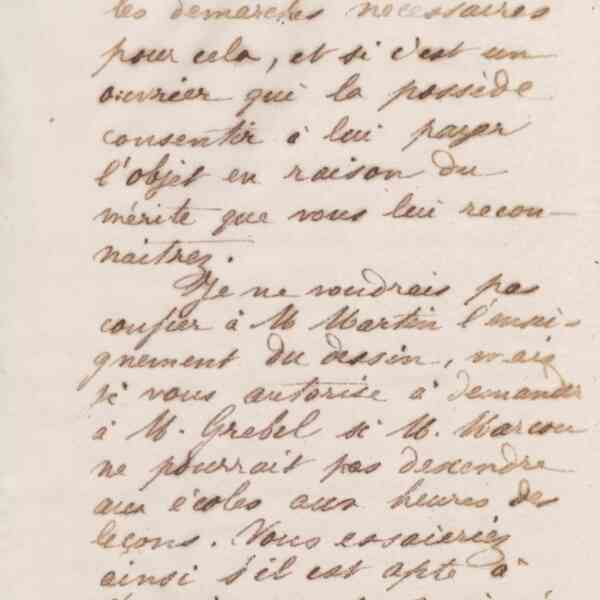 les demarches necessaires
pour cela, et si c'est un
ouvrier qui la possède
consentir à lui payer
l'objet en raison du
mérite que vous lui recon-
naitrez.
Je ne voudrais pas
confier à M Martin l'ensei-
gnement du dessin, mais
je vous autorise à demander
à M. Grebel si M. Marcou
ne pourrait pas descendre
aux écoles aux heures des
leçons. Vous essaieriez
ainsi s'il est apte à